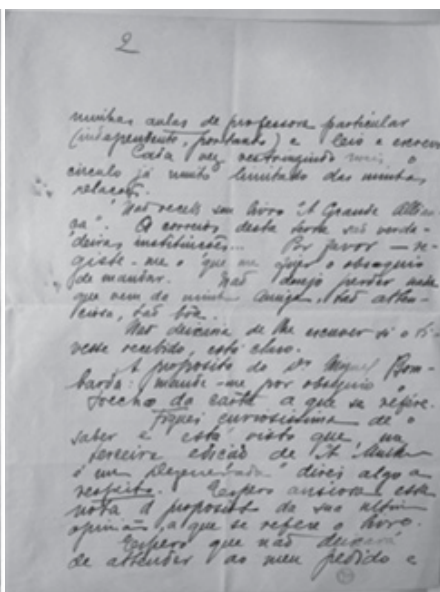 2
minhas aulas de professora particular
(independente, portanto) e leio e escrevo
Cada vez restringindo mais o
circulo já muito limitado das minhas
relações.
Não recebi seu livro "A Grande Allian-
ça". O correio desta terra são verda-
deiras instituições... Por favor — re-
giste-me o que me quer o obsequio
de mandar. Não desejo perder nada
que vem de minha amiga, tão atten-
ciosa, tão bôa.
Não deixaria de lhe escrever si o ti-
vesse recebido, está claro.
A proposito do Dr Miguel Bom-
barda: mande-me por obsequio o
trecho da carta a que se refere.
Fiquei curiosissima de o
saber e está visto que, na
terceira edição de "A Mulher
é uma Degenerada" direi algo a
respeito. Espero anciosa essa
nota a proposito da sua ultima
opinião, a que se refere o livro.
Espero que não deixará
de attender ao meu pedido e